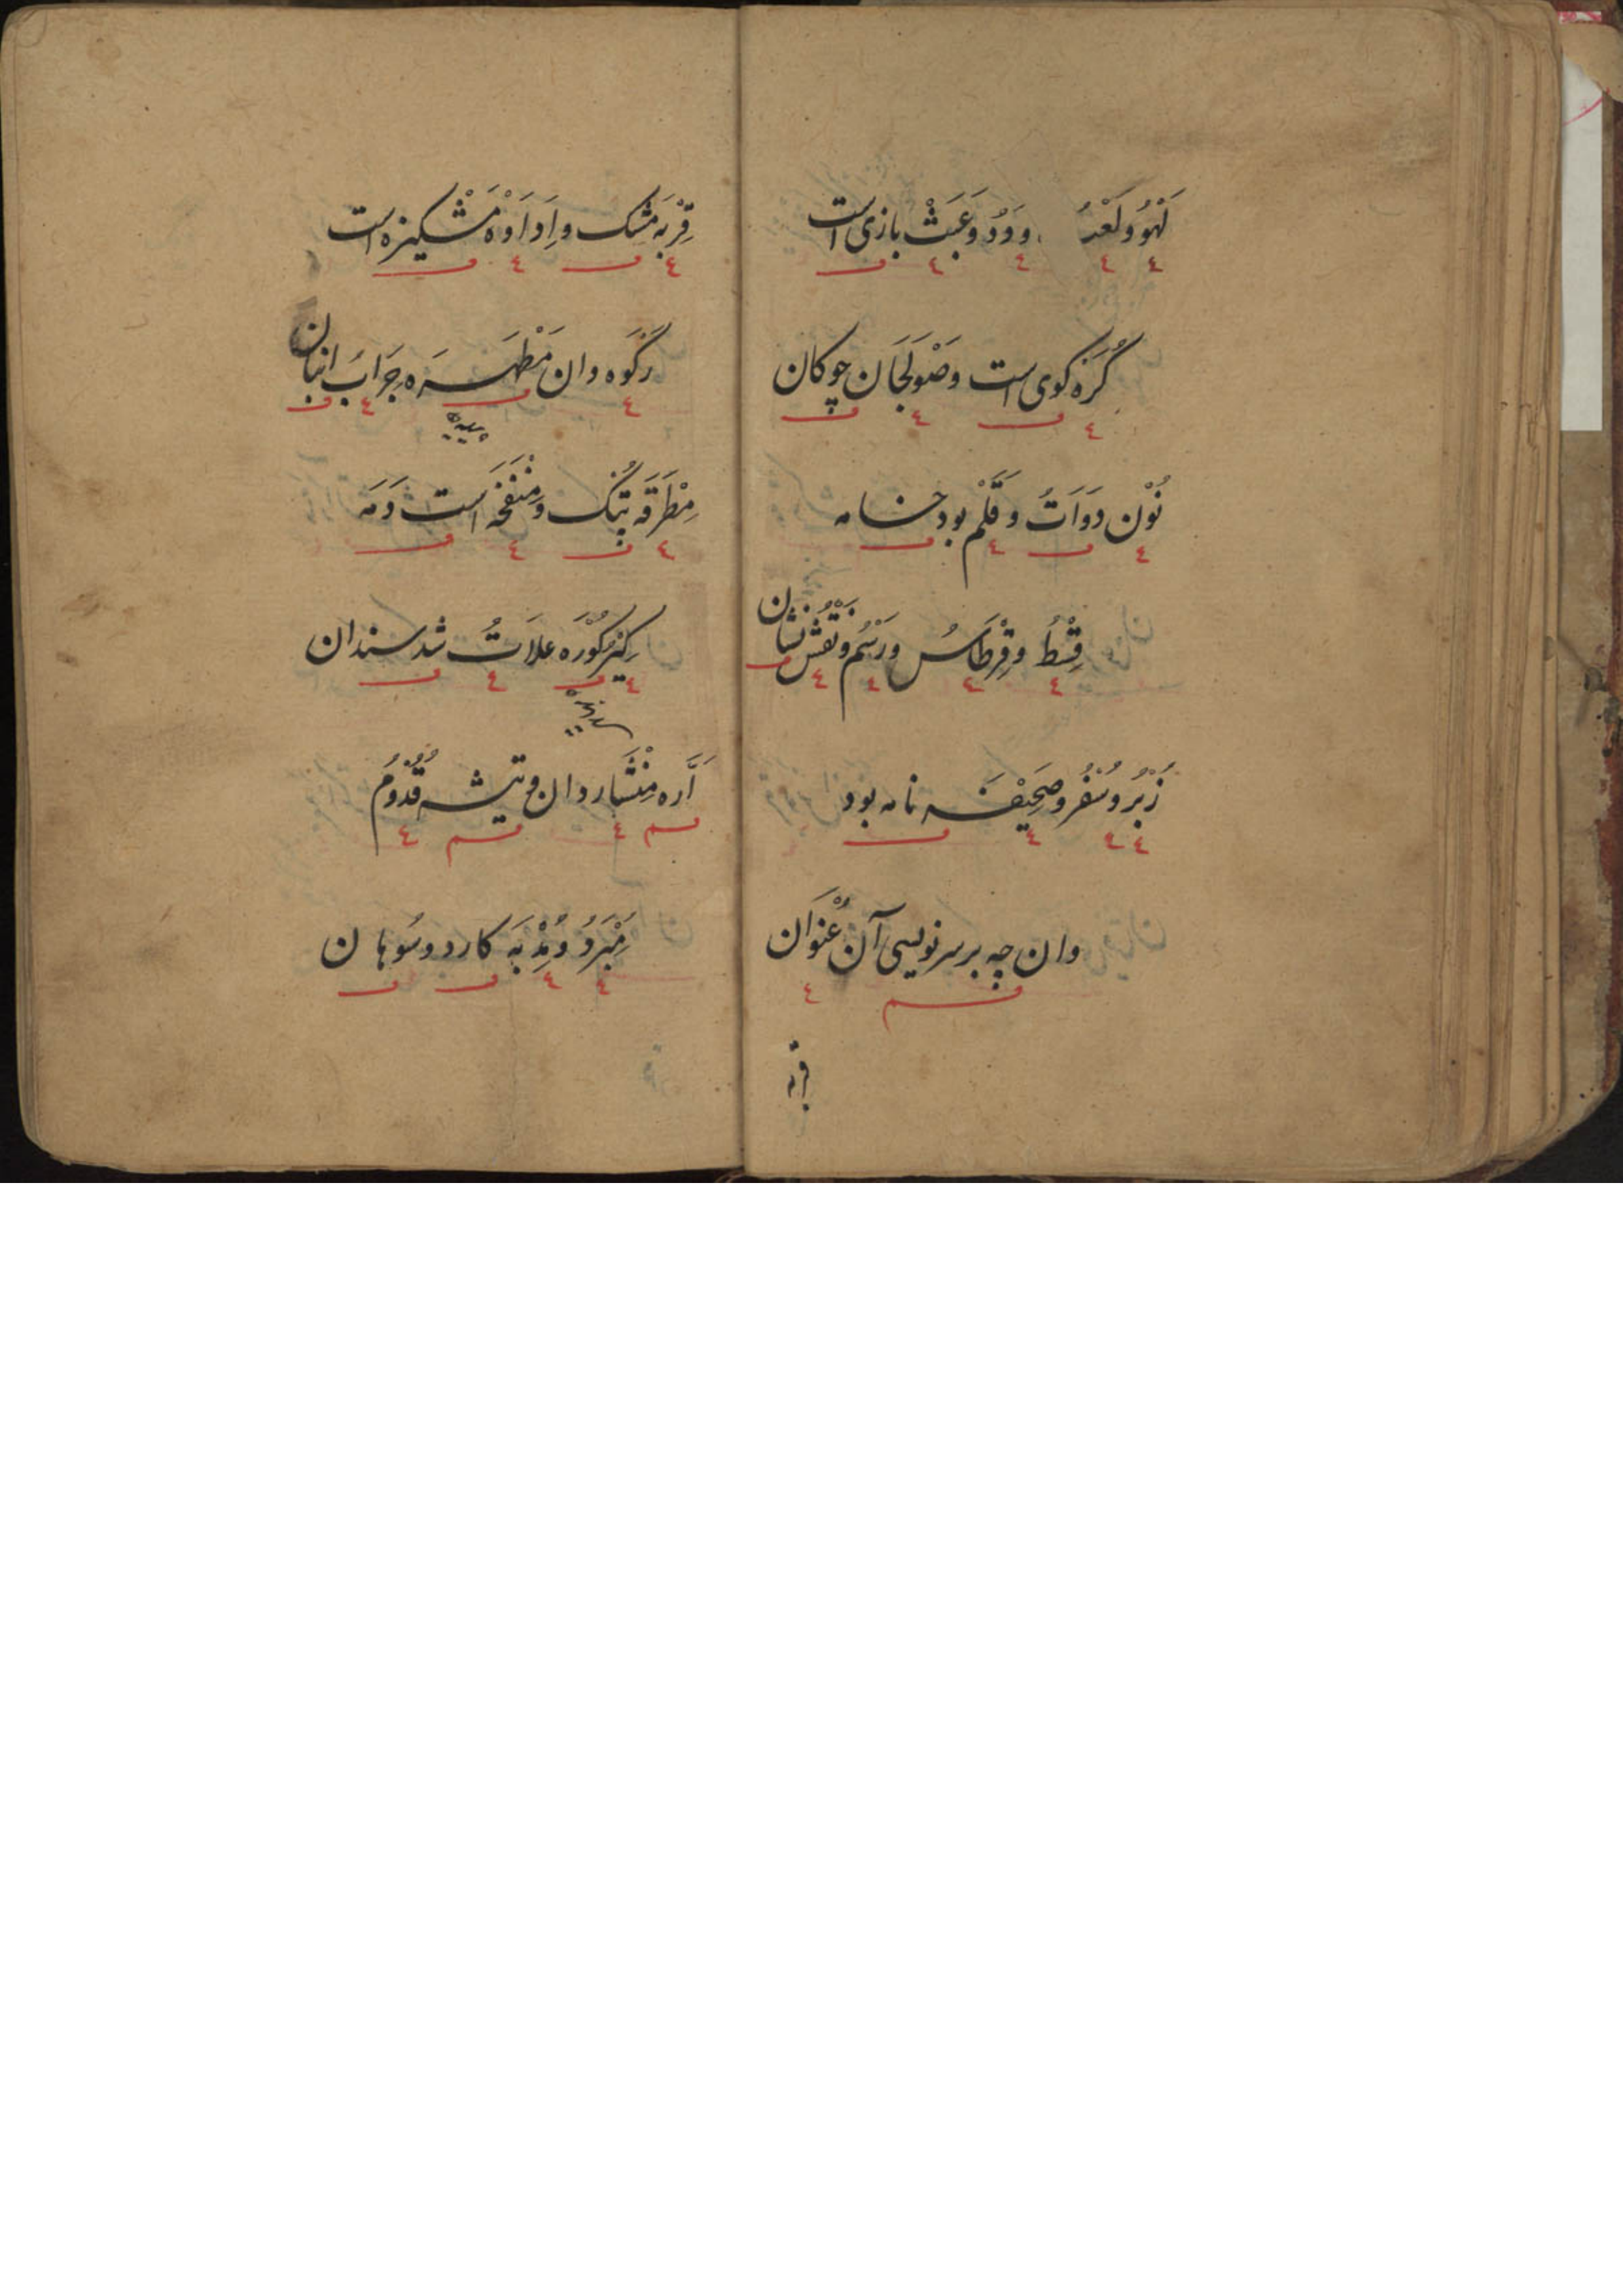 لَهْوُ وَلَعْبُ وَدَدُ وَعَبَثْ بازی است
کُرَه کوی است وَصَوْلَجَان چوکان
نُوْن دَوَاتُ وقَلَمْ بود خامه
قِسْطُ وقِرْطَاسُ ورَسْم ونَقْش نشان
زُبْرُ وسُفْرُ وصَحِیْفَه نامه بود
وان چه بر سر نویسی آن عُنْوَان
قربه
قِرْبَه مَشک و اِدَاوَه مَشْکیزه است
رَکْوَه دان مَطْهَرَه جِرَابُ انبان
مِطْرَقَه پتک ومِنْفَخَه است دَمَه
کِیْر کُوْرَه علَاتُ شد سندان
اَرَّه مِنْشَار دان و تیشه قُدُوْم
مِبْرَدُ ومُدْیَه کارد وسُوهان